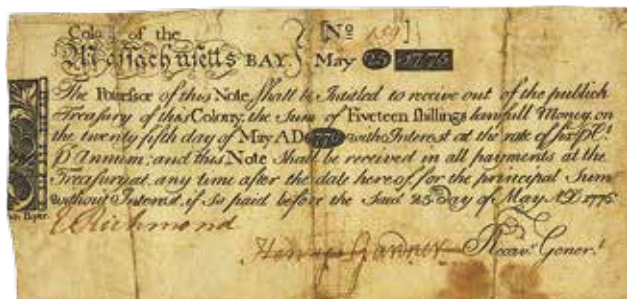 Colo of the [No 159]
Massachusetts BAY. } May 25 1775
The Possessor of this Note Shall be Intitled to receive out of the publick
Treasury of this Colony, the Sum of Fiveteen Shillings lawfull Money on
the twenty fifth day of May AD 1776 with Interest at the rate of six p Ct
p Annum; and this Note Shall be received in all payments at the
Treasury at any time after the date hereof, for the principal Sum
without Interest, if so paid before the Said 25 day of May AD 1776
E Richmond
Henry Gardner Recevr Genera.l